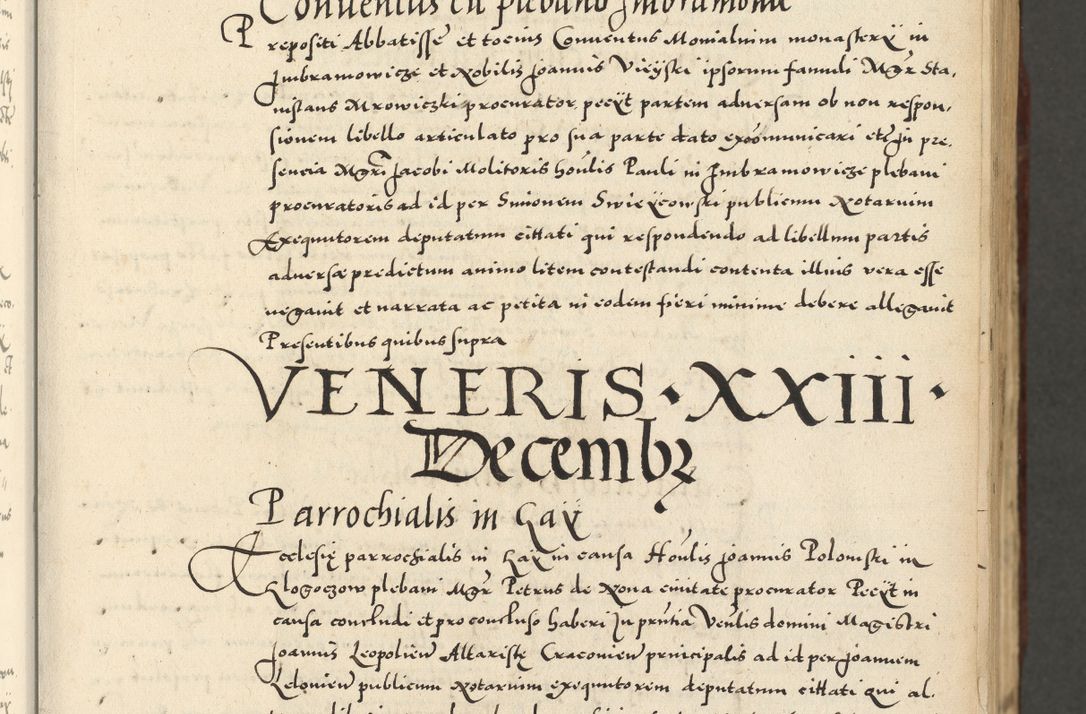 Conventus cu plebano Imbramowic
Prepositi Abbatisse et tocius Conventus Monialium monastery in
Imbramowicze et Nobilis Joannis Vieyski ipsorum famuli Mgr Sta,
nislaus Mrowiczki procurator, pecyt partem adversam ob non respon,
sionem libello articulato pro sua parte dato excomunicari etc In pre,
sencia Mgri Jacobi Molitoris honlis Pauli in Imbramowicze plebani
procuratoris ad id per Simonem Swieycowski publicum Notarium
Exequutorem deputatum cittati qui respondendo ad libellum partis
adverse predictum animo litem contestandi contenta illius vera esse
negavit et narrata ac petita in eodem fieri minime debere allegavit
Presentibus quibus supra
VENERIS · XXIII ·
Decembr
Parrochialis in Gay
Ecclesie parrochialis in Gay in causa Honlis Joannis Polomski in
Klogoczow plebani Mgr Petrus de Nova civitate procurator Pecyt in
causa concludi et pro concluso haberi In prntia Venlis domini Magistri
Joannis Leopolien Altariste Cracovien principalis ad id per Joannem
Lelovien publicum Notarium exequutorem deputatum cittati qui al,